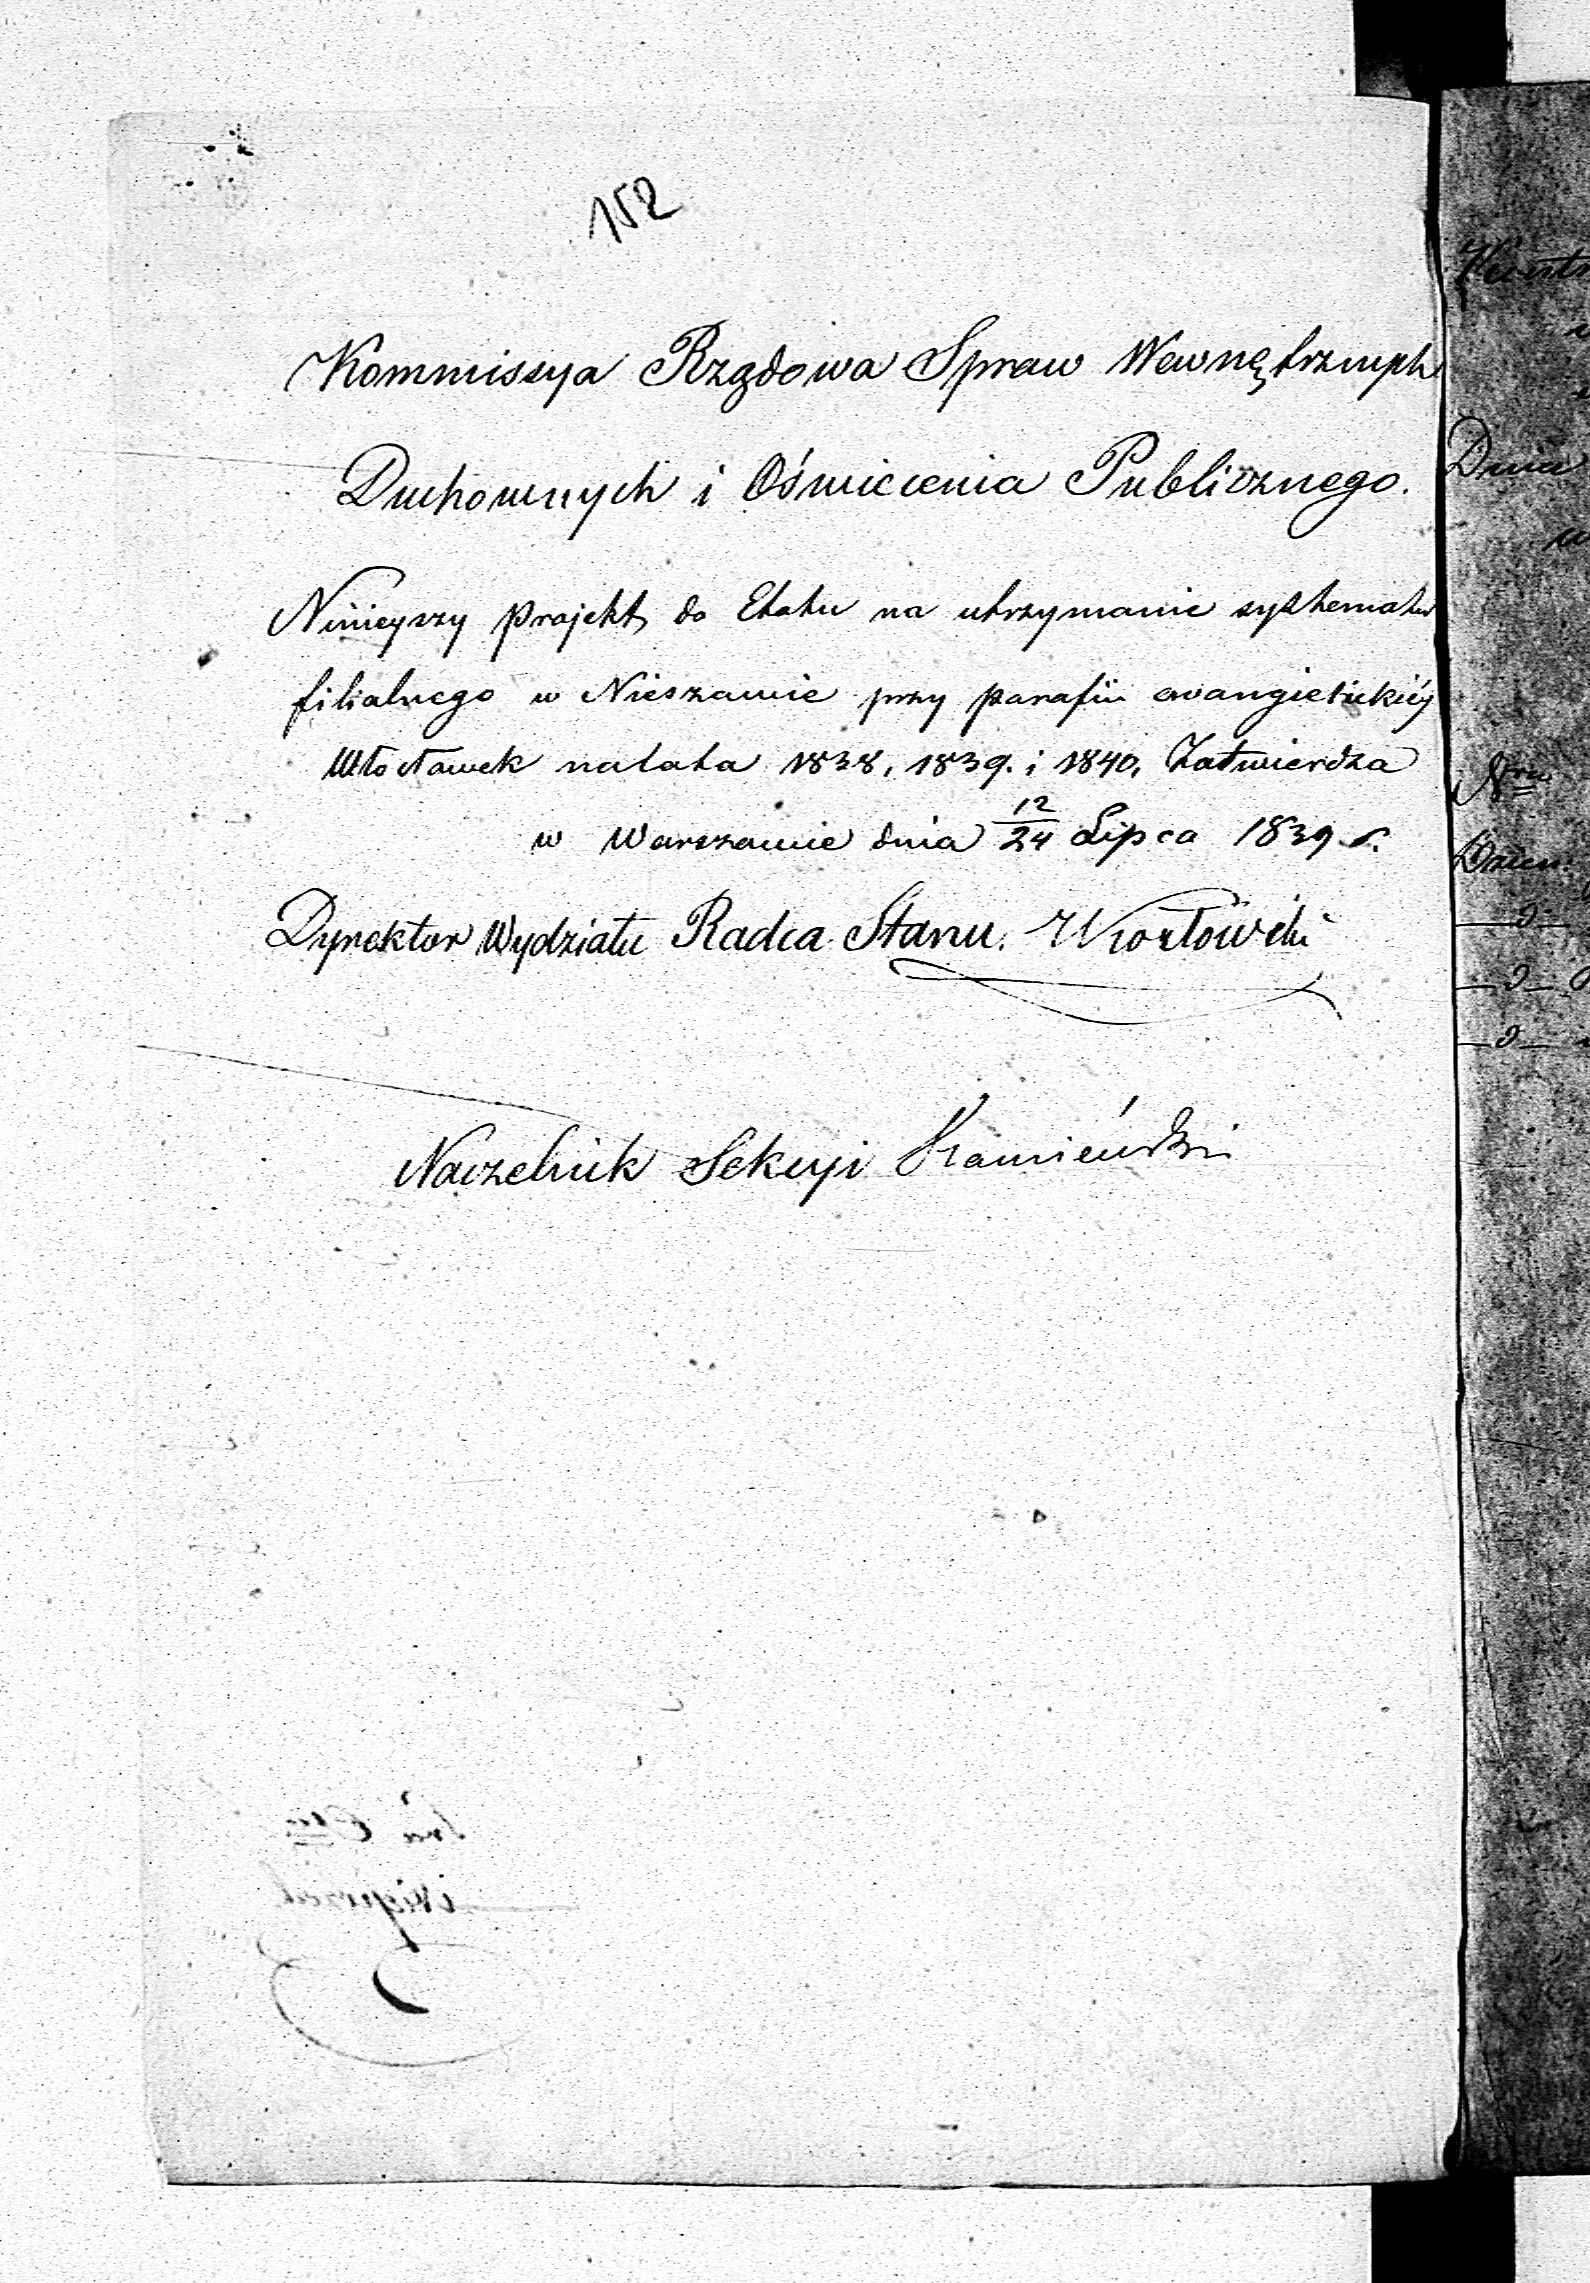 152
Kommissya Rządowa Spraw Wewnętrznych
Duchownych i Oświecenia Publicznego.
Niniejszy projekt do Etatu na utrzymanie systhematu
filialnego w Nieszawie przy parafii ewangielickiéj
Włocławek na lata 1838, 1839. i 1840, Zatwierdza
w Warszawie dnia 12/24 Lipca 1839 r.
Dyrektor Wydziału Radca Stanu. Kozłowski
Naczelnik Sekcyi Kamieński
Dnia
Nro